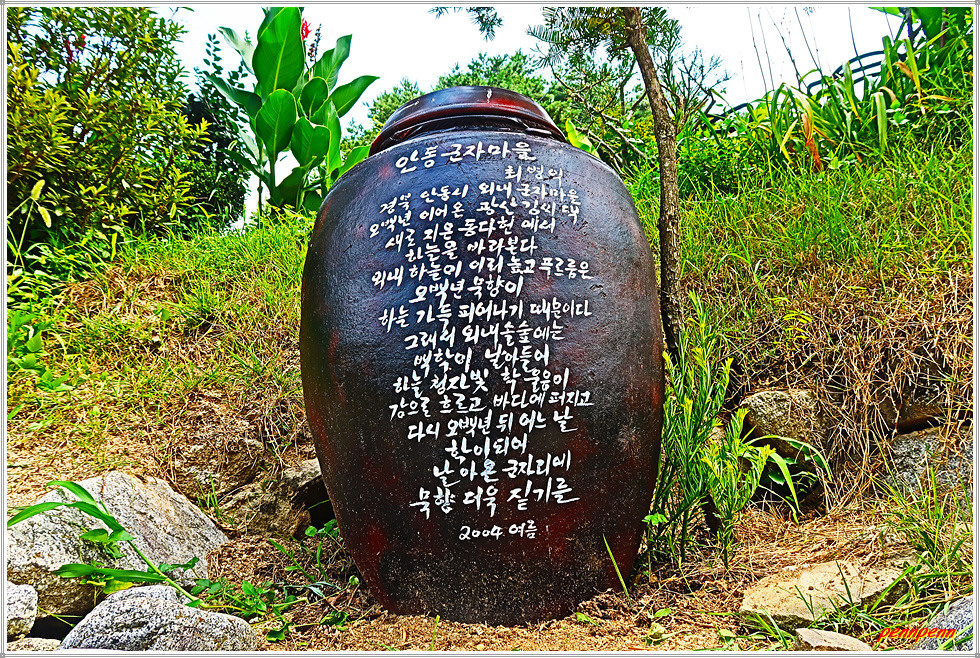 안동 군자마을
최범의
경북 안동시 외내 군자마을
오백년 이어온 광산김의 택
새로 지은 동다헌 에서
하늘을 바라본다
외내 하늘이 어리 높고 푸르름은
오백년 묵향이
하늘 가득 피어나기 때문이다
그래서 외내솔숲에는
백학이 날아들어
하늘 청자빛 학 울음이
강으로 흐르고 바다에 퍼지고
다시 오백년 뒤 어느 날
학이 되어
날아온 군자리에
묵향 더욱 짙기를
2004 여름
pennpenn